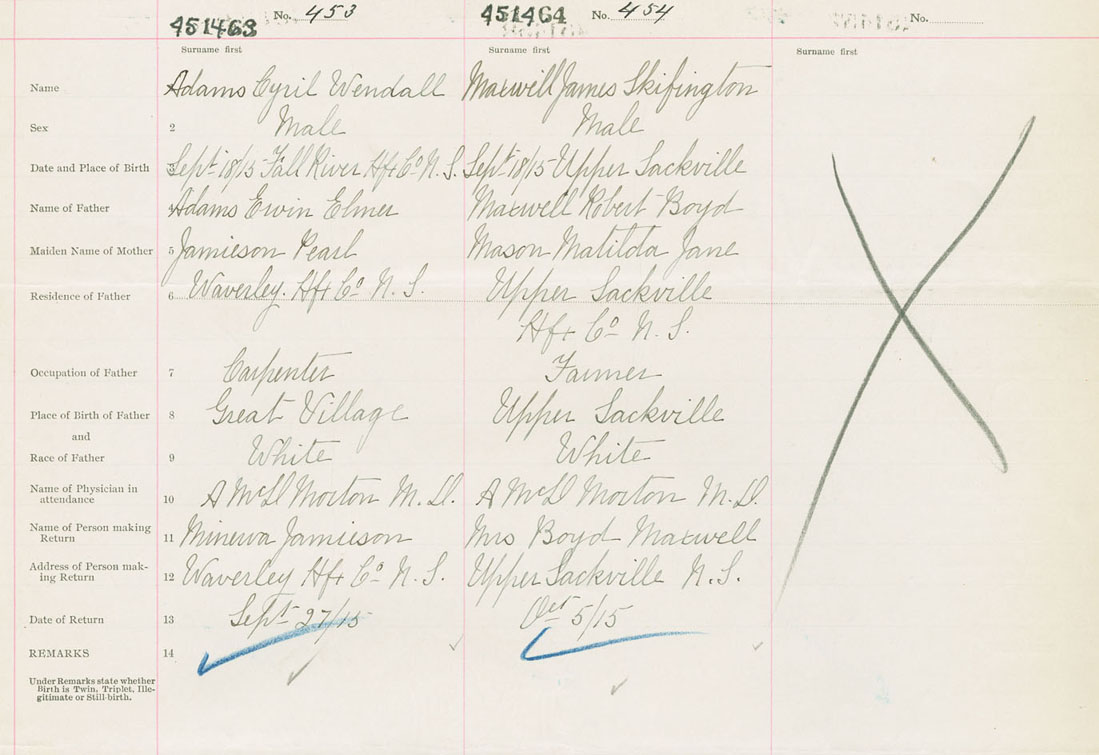 451463 No. 453 451464 No. 454 No.
Surname first Surname first Surname first
Name Adams Cyril Wendall Maxwell James Skifington
Sex 2 Male Male
Date and Place of Birth 3 Sept 18/15 Fall River Hfx Co N. S. Sept 18/15 Upper Sackville
Name of Father 4 Adams Erwin Elmer Maxwell Robert Boyd
Maiden Name of Mother 5 Jamieson Pearl Mason Matilda Jane
Residence of Father 6 Waverley. Hfx Co N. S. Upper Sackville
Hfx Co N. S.
Occupation of Father 7 Carpenter Farmer
Place of Birth of Father 8 Great Village Upper Sackville
and
Race of Father 9 White White
Name of Physician in
attendance 10 A McD Morton M. D. A McD Morton M. D.
Name of Person making
Return 11 Minerva Jamieson Mrs Boyd Maxwell
Address of Person mak-
ing Return 12 Waverley Hfx Co N. S. Upper Sackville N. S.
Date of Return 13 Sept 27/15 Oct 5/15
REMARKS 14
Under Remarks state whether
Birth is Twin, Triplet, Ille-
gitimate or Still-birth.